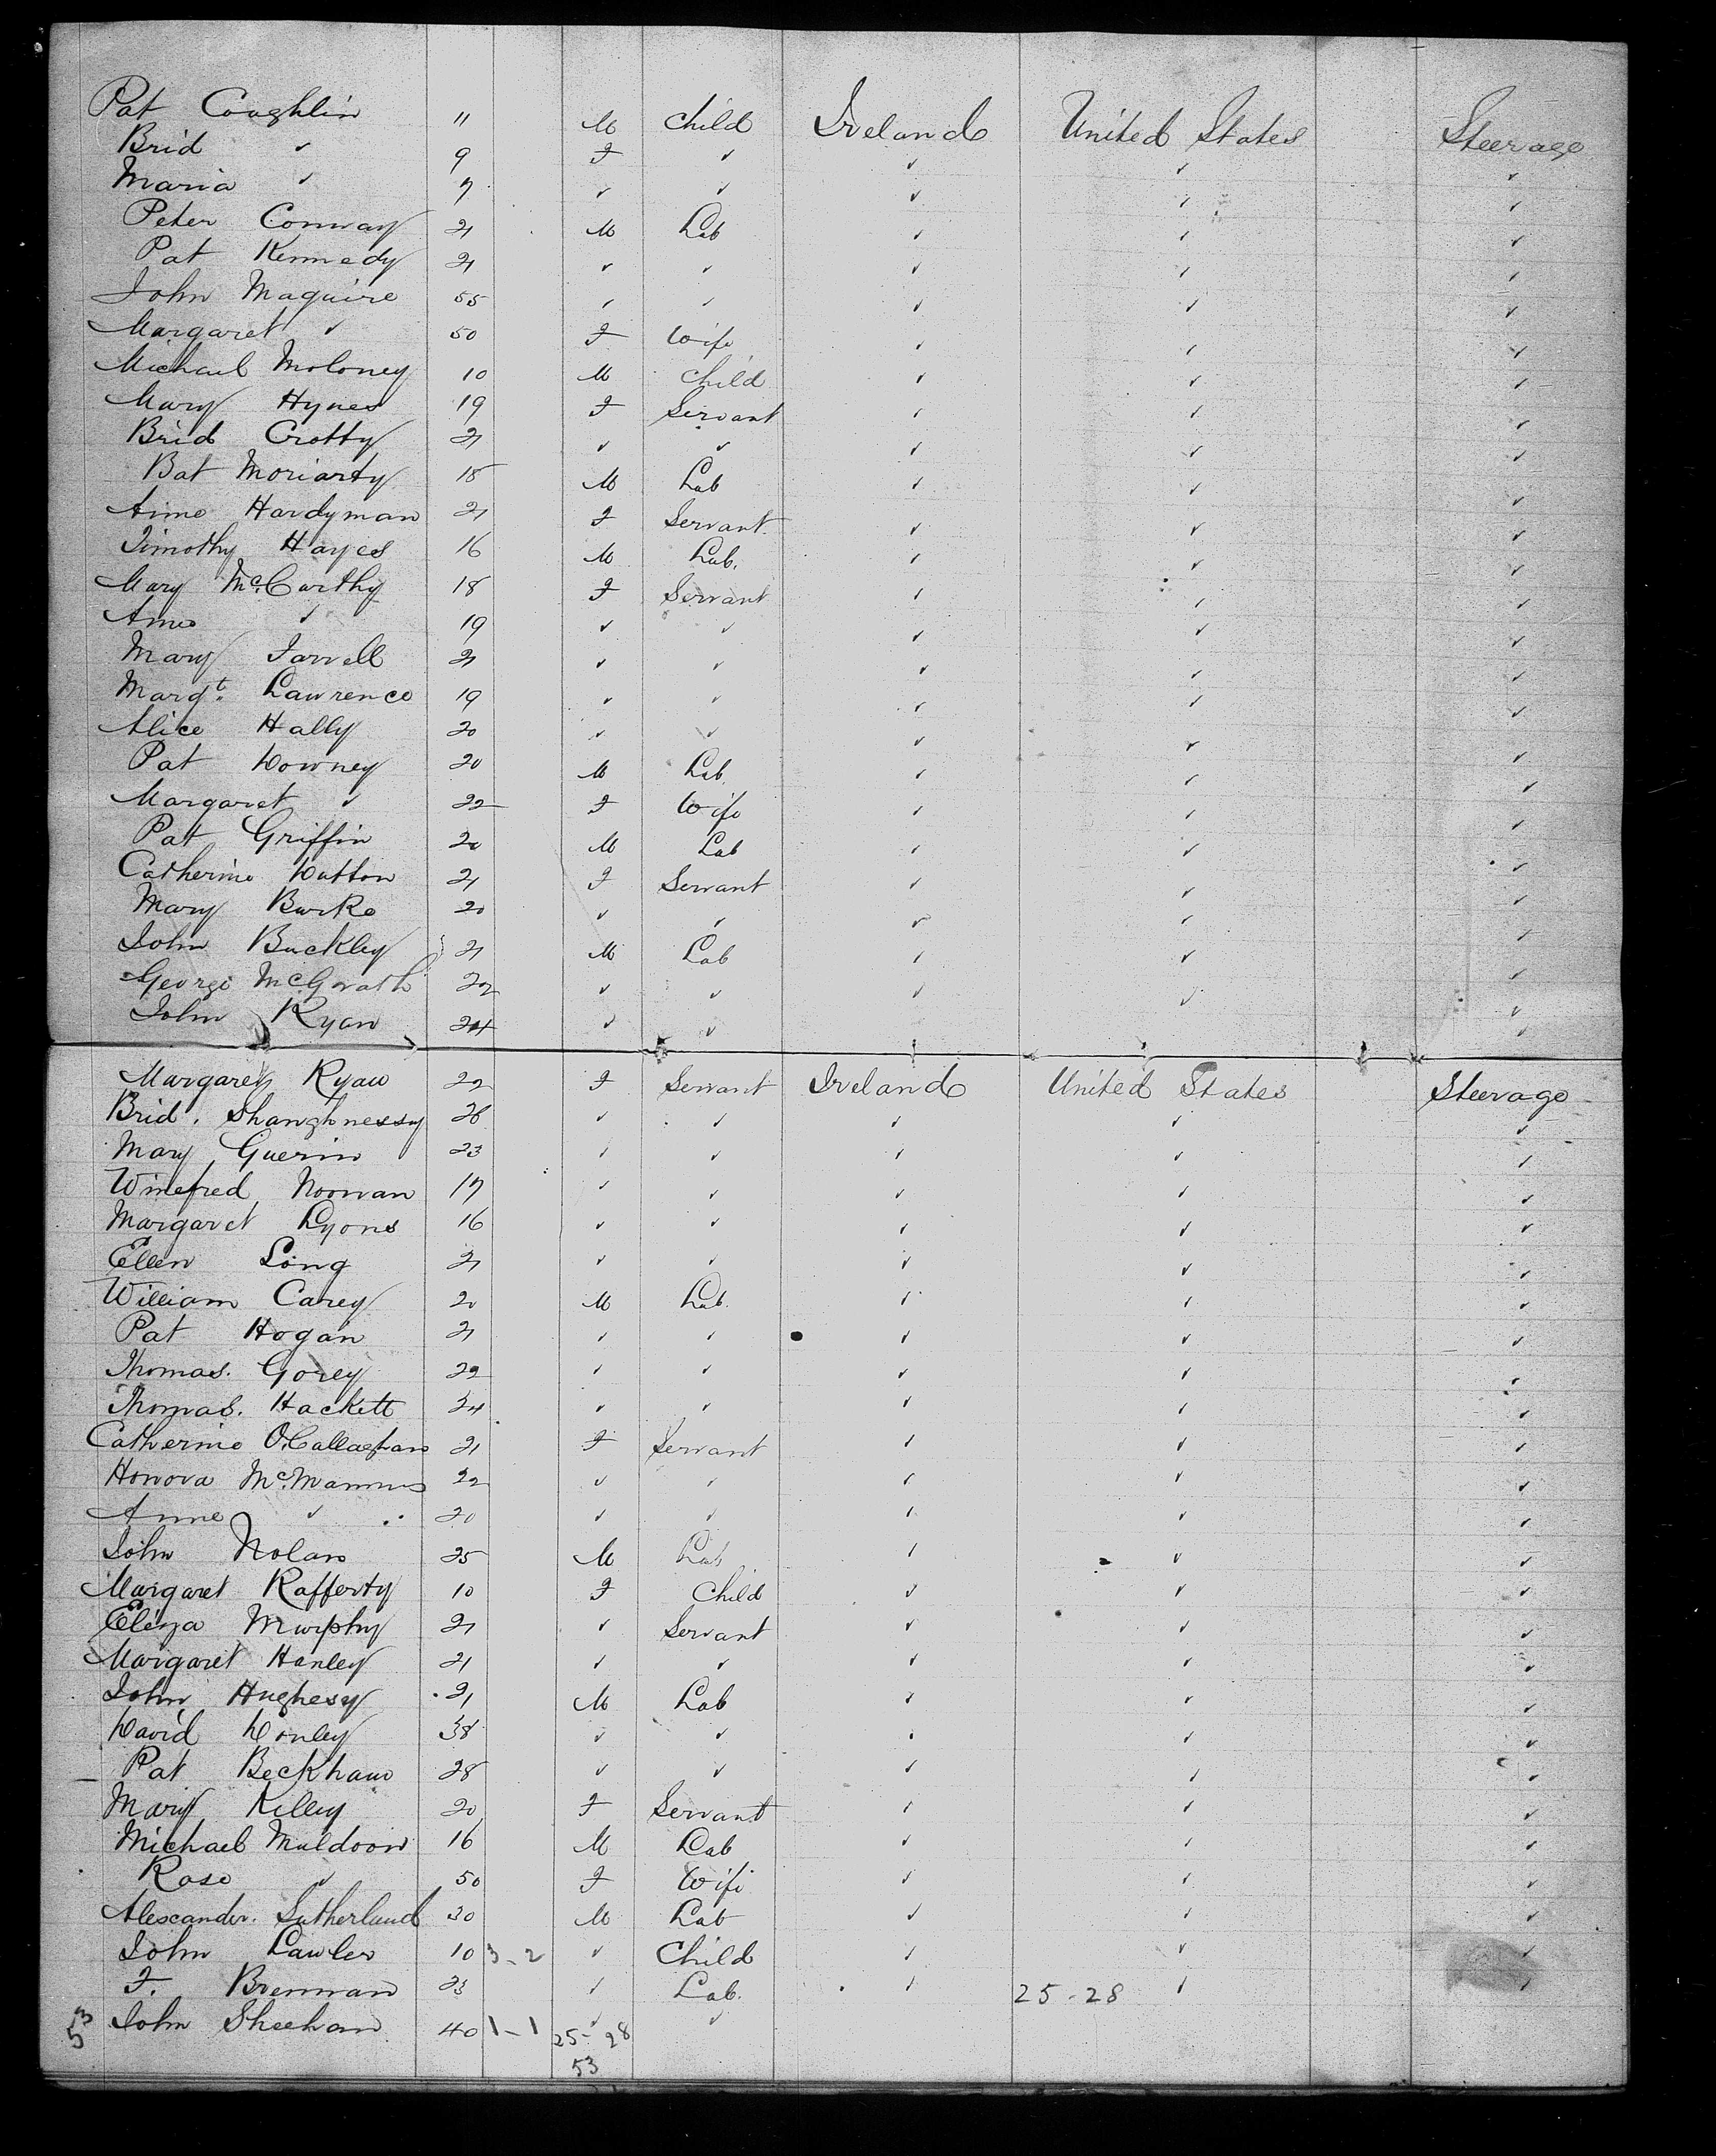 Pat Coughlin 11 M Child Ireland United States Steerage
Brid ✓ 9 F ✓ ✓ ✓ ✓
Maria ✓ 7 ✓ ✓ ✓ ✓ ✓
Peter Conway 21 M Lab ✓ ✓ ✓
Pat Kennedy 21 ✓ ✓ ✓ ✓ ✓
John Maguire 55 ✓ ✓ ✓ ✓ ✓
Margaret ✓ 50 F Wife ✓ ✓ ✓
Michael Moloney 10 M Child ✓ ✓ ✓
Mary Hynes 19 F Servant ✓ ✓ ✓
Brid Crotty 21 ✓ ✓ ✓ ✓ ✓
Bat Moriarty 18 M Lab ✓ ✓ ✓
Anne Hardyman 21 F Servant ✓ ✓ ✓
Timothy Hayes 16 M Lab. ✓ ✓ ✓
Mary McCarthy 18 F Servant ✓ ✓ ✓
Anne ✓ 19 ✓ ✓ ✓ ✓ ✓
Mary Farrell 21 ✓ ✓ ✓ ✓ ✓
Margt. Lawrence 19 ✓ ✓ ✓ ✓ ✓
Alice Hally 20 ✓ ✓ ✓ ✓ ✓
Pat Downey 20 M Lab. ✓ ✓ ✓
Margaret ✓ 22 F Wife ✓ ✓ ✓
Pat Griffin 20 M Lab ✓ ✓ ✓
Catherine Dutton 21 F Servant ✓ ✓ ✓
Mary Burke 20 ✓ ✓ ✓ ✓ ✓
John Buckley 21 M Lab ✓ ✓ ✓
George McGrath 22 ✓ ✓ ✓ ✓ ✓
John Ryan 24 ✓ ✓ ✓
Margaret Ryan 22 F Servant Ireland United States Steerage
Brid. Shaughnessy 26 ✓ ✓ ✓ ✓ ✓
Mary Guerin 23 ✓ ✓ ✓ ✓ ✓
Winefred Noonan 17 ✓ ✓ ✓ ✓ ✓
Margaret Lyons 16 ✓ ✓ ✓ ✓ ✓
Ellen Long 21 ✓ ✓ ✓ ✓ ✓
William Carey 20 M Lab. ✓ ✓ ✓
Pat Hogan 21 ✓ ✓ ✓ ✓ ✓
Thomas. Gorey 22 ✓ ✓ ✓ ✓ ✓
Thomas. Hackett 24 ✓ ✓ ✓ ✓ ✓
Catherine O'Callaghan 21 F Servant ✓ ✓ ✓
Honora McManus 22 ✓ ✓ ✓ ✓ ✓
Anne ✓ 20 ✓ ✓ ✓ ✓ ✓
John Nolan 25 M Lab ✓ ✓ ✓
Margaret Rafferty 10 F Child ✓ ✓ ✓
Eliza Murphy 21 ✓ Servant ✓ ✓ ✓
Margaret Hanley 21 ✓ ✓ ✓ ✓ ✓
John Hughesy 21 M Lab ✓ ✓ ✓
David Donley 38 ✓ ✓ ✓ ✓ ✓
Pat Beckham 28 ✓ ✓ ✓ ✓ ✓
Mary Kelley 20 F Servant ✓ ✓ ✓
Michael Muldoon 16 M Lab ✓ ✓ ✓
Rose ✓ 50 F Wife ✓ ✓ ✓
Alexander. Sutherland 30 M Lab ✓ ✓ ✓
John Lawler 10 3-2 ✓ Child ✓ ✓ ✓
F. Brennan 23 ✓ Lab. ✓ 25-28 ✓ ✓
53 John Sheehan 40 1-1 ✓ ✓
25-28
53